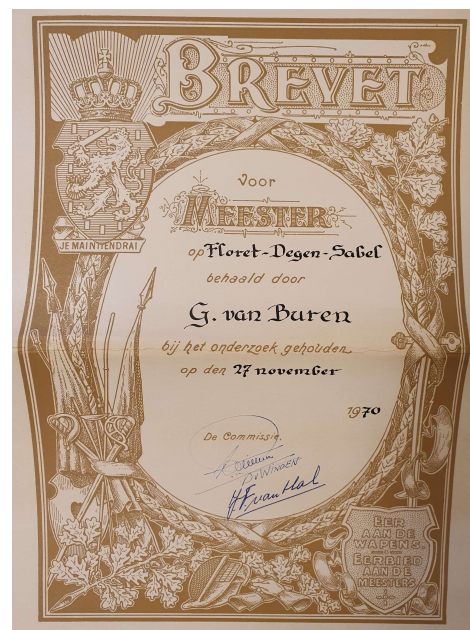 BREVET
JE MAINTIENDRAI
voor
MEESTER
op Floret-Degen-Sabel
behaald door
G. van Buren
bij het onderzoek gehouden
op den 27 november
1970
De Commissie.
D. v WINGEN
H F van Hal
EER
AAN DE
WAPENS.
EERBIED
AAN DE
MEESTERS